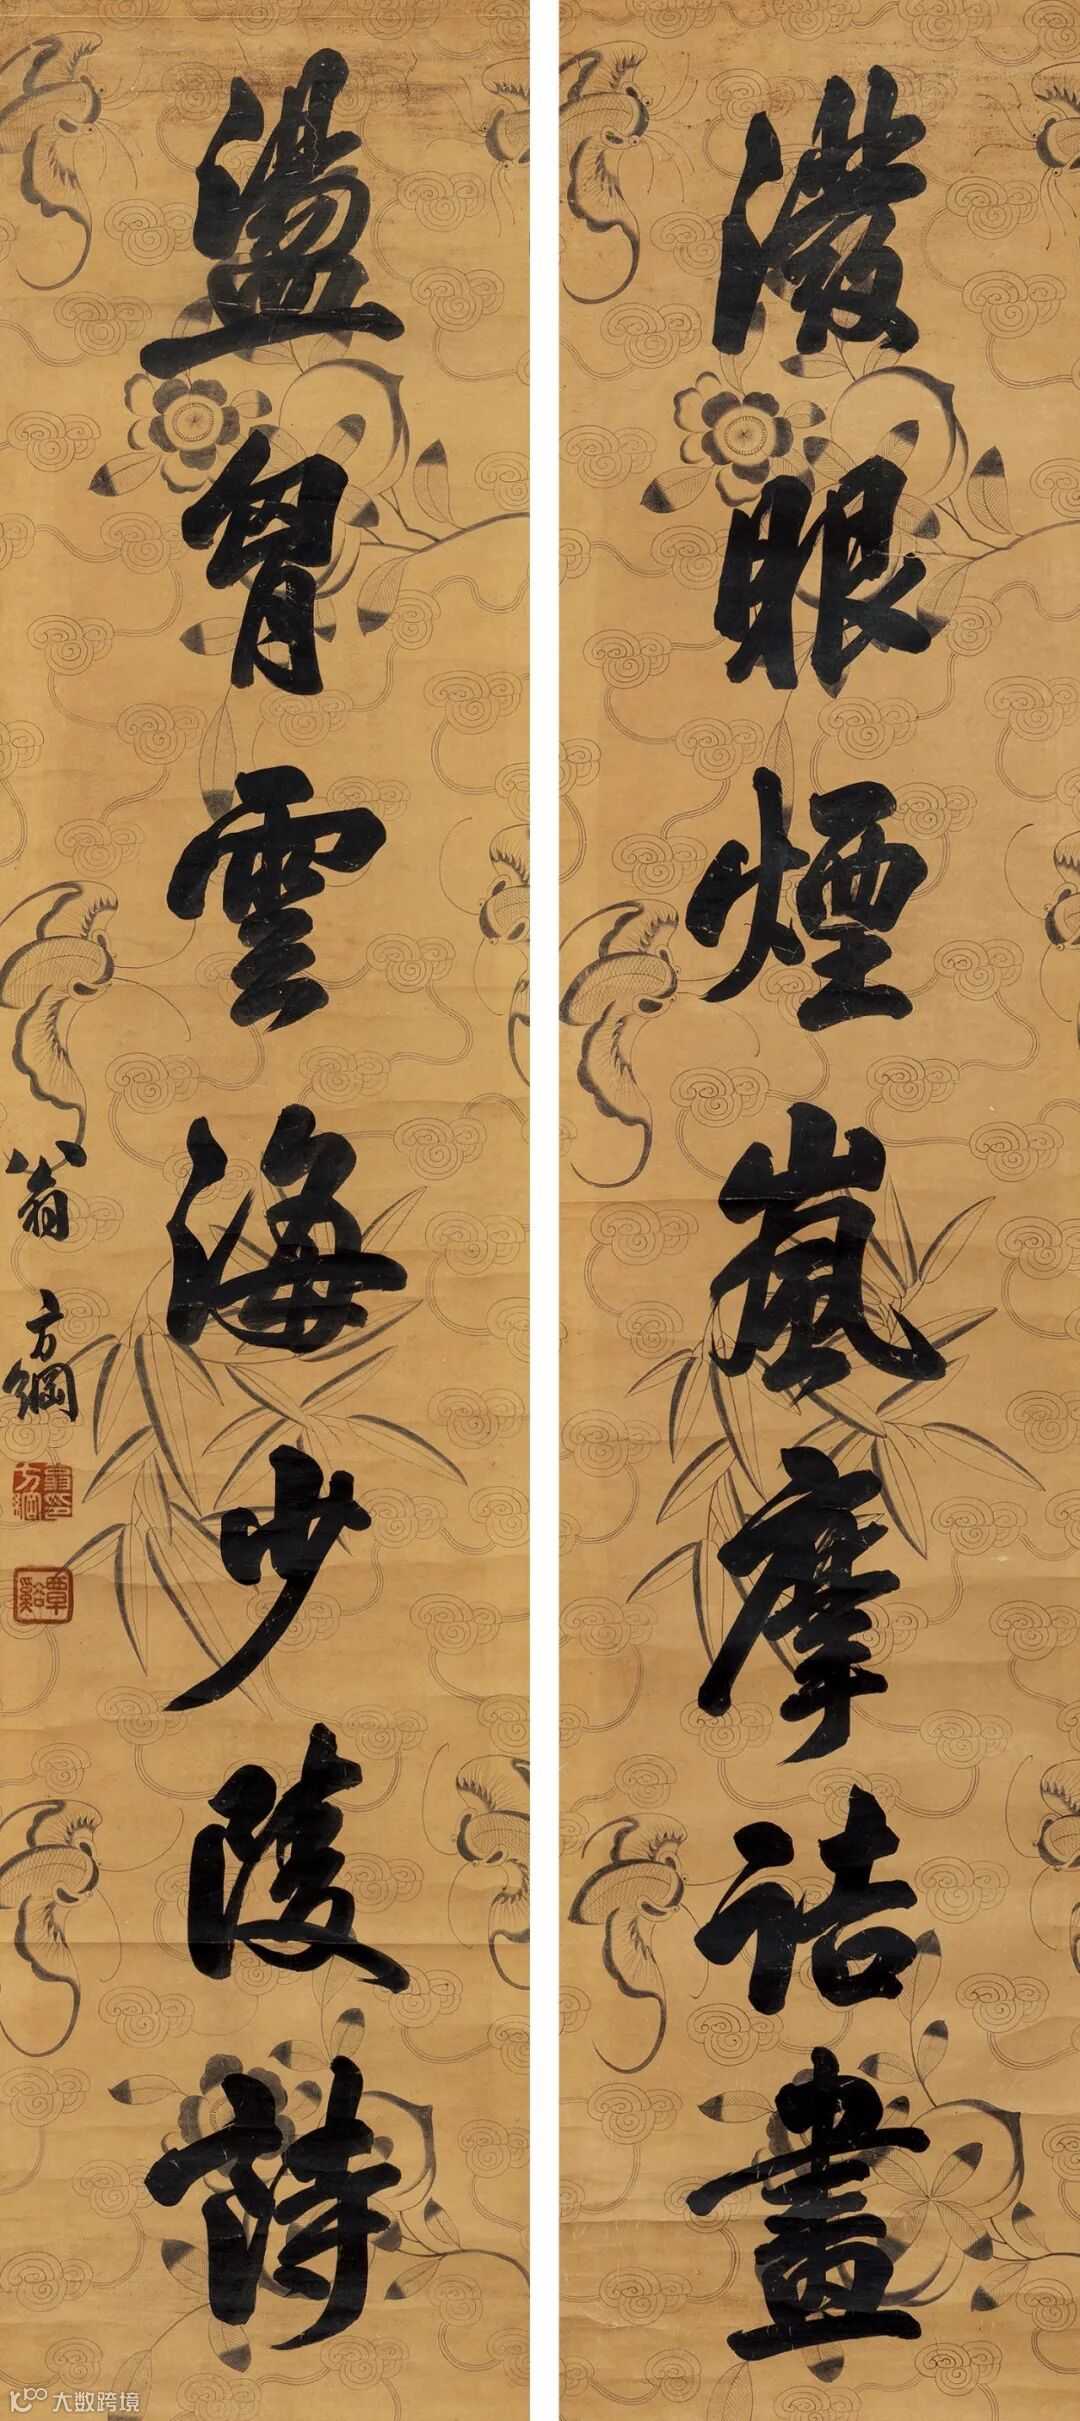 潑眼煙嵐摩詰畫
盪胷雲海少陵詩
翁方綱
翁印方綱
覃谿
大数跨境